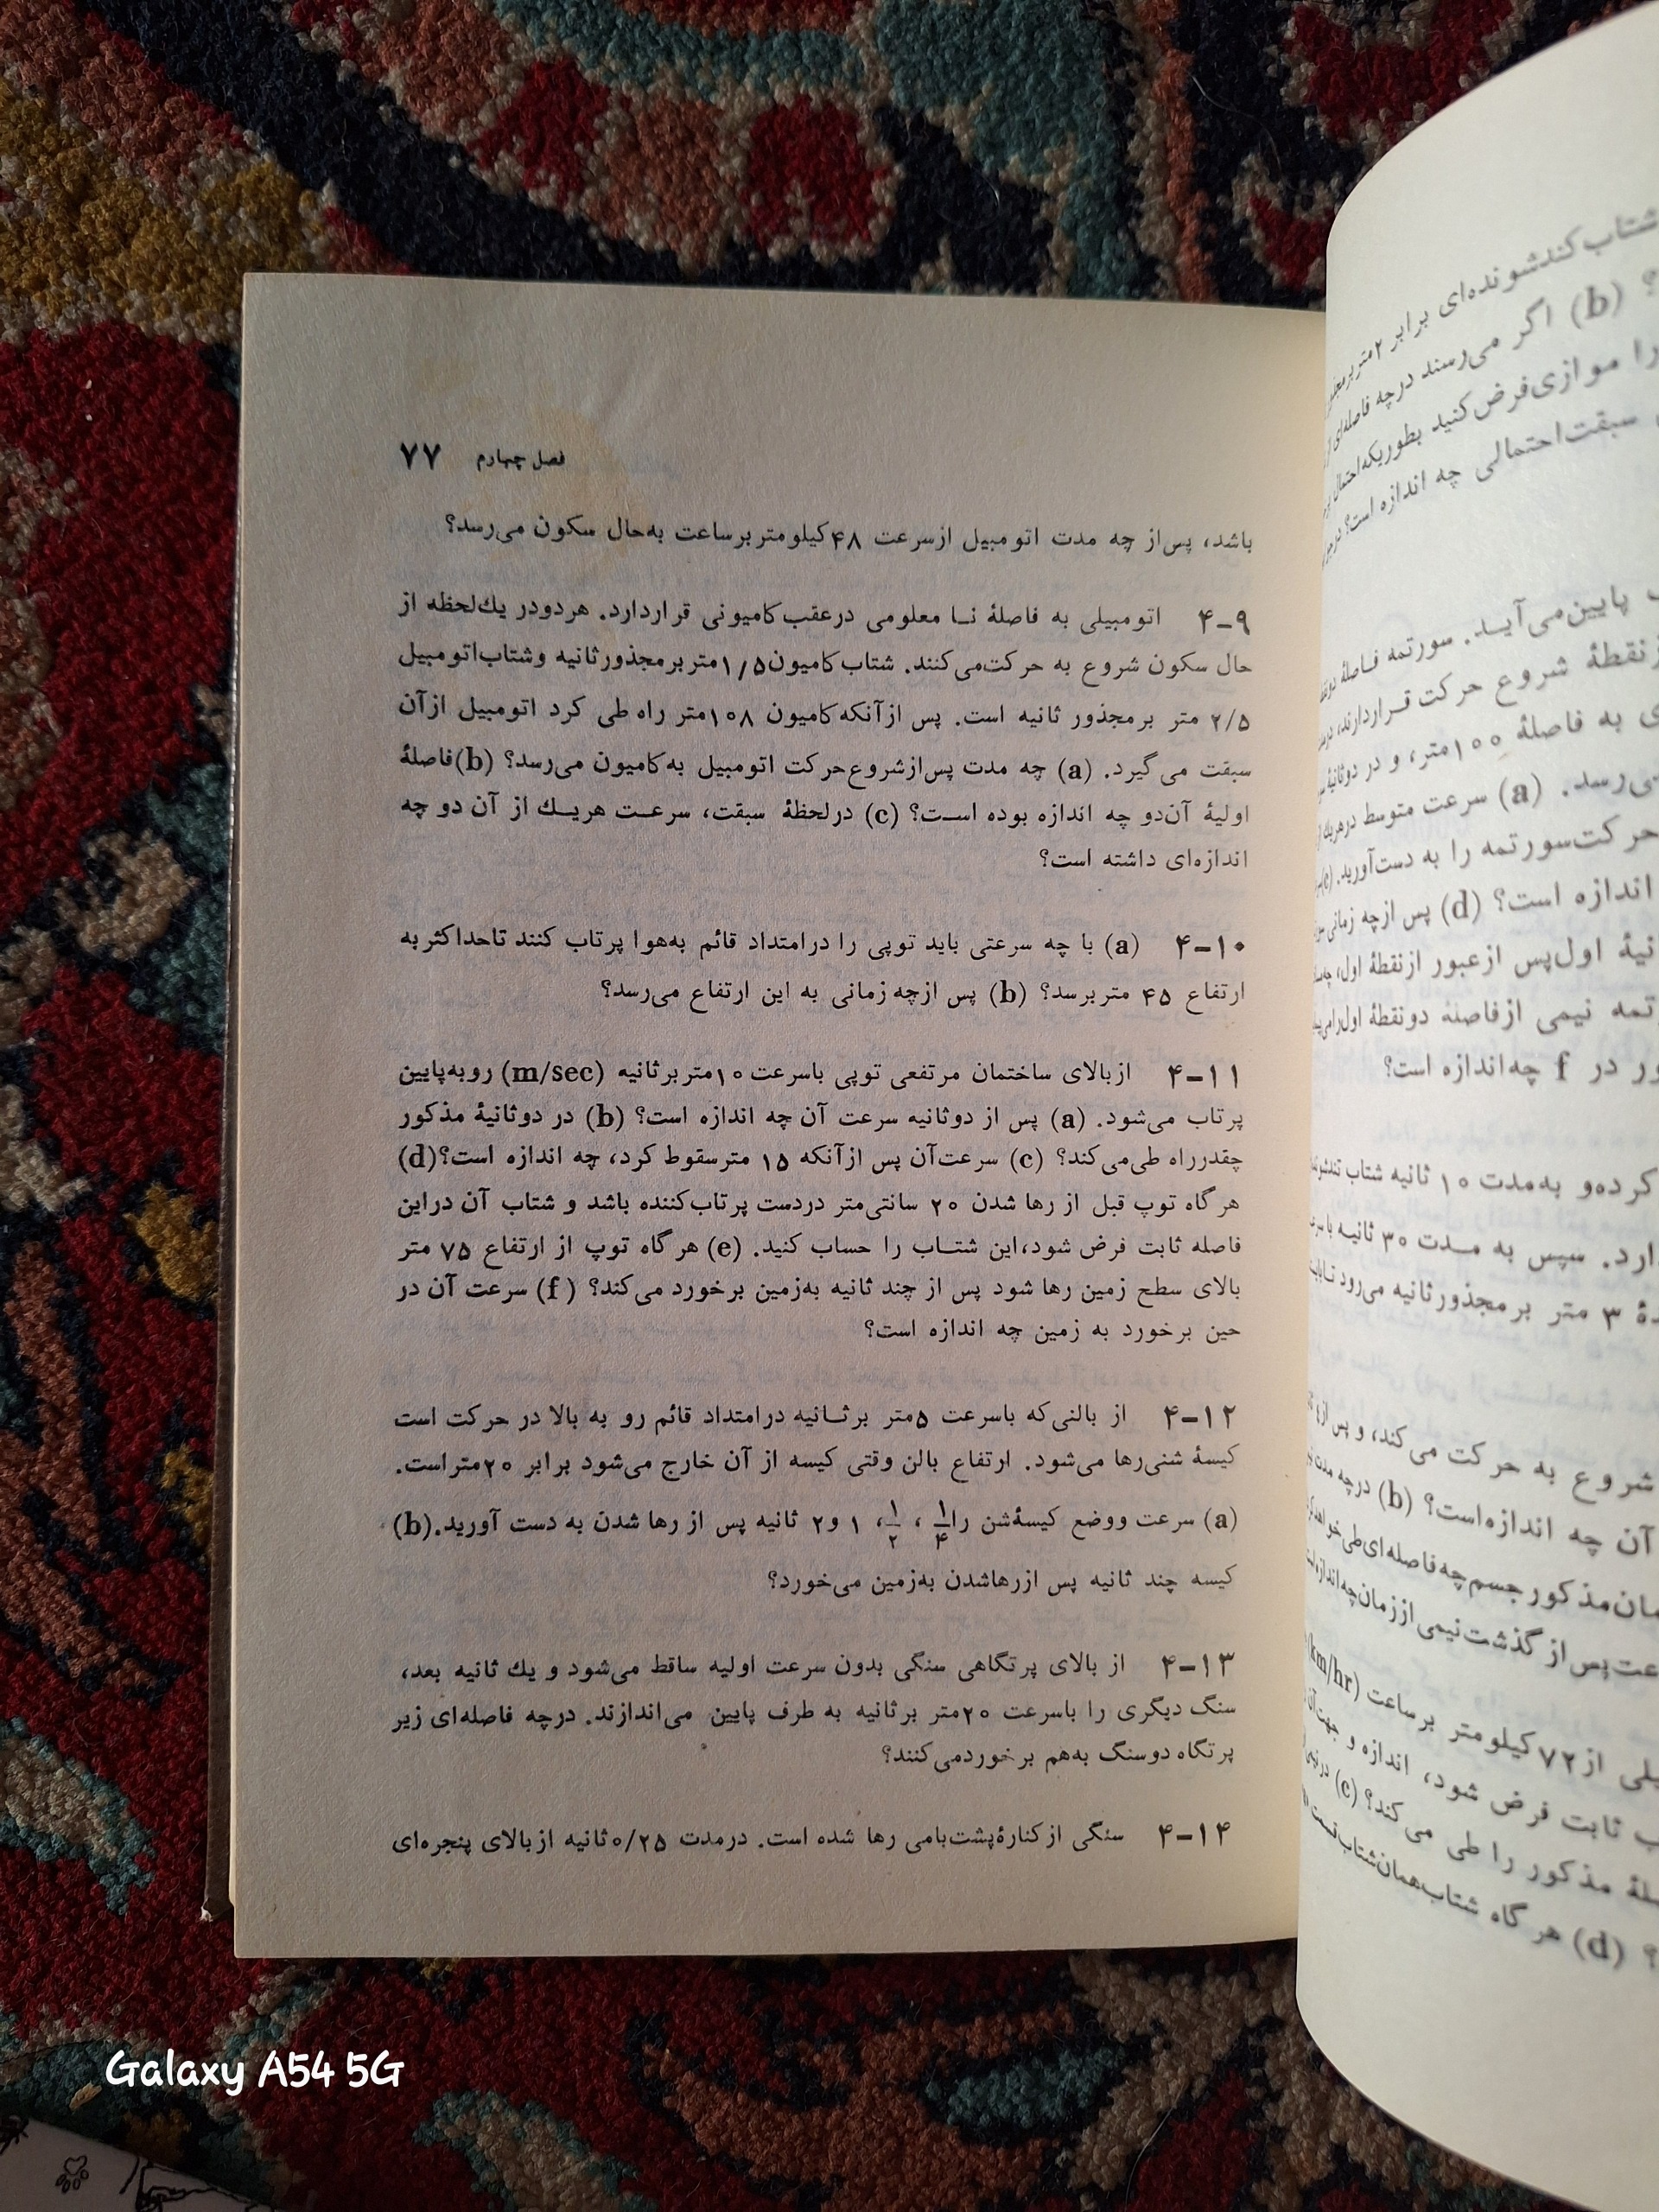 فصل چهارم ۷۷
باشد، پس از چه مدت اتومبیل از سرعت ۴۸ کیلومتر بر ساعت به حال سکون می‌رسد؟
۴-۹ اتومبیلی به فاصلهٔ نا معلومی در عقب کامیونی قرار دارد. هر دو در یك لحظه از
حال سکون شروع به حرکت می‌کنند. شتاب کامیون ۱/۵ متر بر مجذور ثانیه و شتاب اتومبیل
۲/۵ متر بر مجذور ثانیه است. پس از آنکه کامیون ۱۰۸ متر راه طی کرد اتومبیل از آن
سبقت می گیرد. (a) چه مدت پس از شروع حرکت اتومبیل به کامیون می‌رسد؟ (b) فاصلهٔ
اولیهٔ آن دو چه اندازه بوده است؟ (c) در لحظهٔ سبقت، سرعت هر یك از آن دو چه
اندازه‌ای داشته است؟
۴-۱۰ (a) با چه سرعتی باید توپی را در امتداد قائم به هوا پرتاب کنند تا حداکثر به
ارتفاع ۴۵ متر برسد؟ (b) پس از چه زمانی به این ارتفاع می‌رسد؟
۴-۱۱ از بالای ساختمان مرتفعی توپی با سرعت ۱۰ متر بر ثانیه (m/sec) رو به پایین
پرتاب می‌شود. (a) پس از دو ثانیه سرعت آن چه اندازه است؟ (b) در دو ثانیهٔ مذکور
چقدر راه طی می‌کند؟ (c) سرعت آن پس از آنکه ۱۵ متر سقوط کرد، چه اندازه است؟ (d)
هر گاه توپ قبل از رها شدن ۲۰ سانتی‌متر در دست پرتاب کننده باشد و شتاب آن در این
فاصله ثابت فرض شود، این شتاب را حساب کنید. (e) هر گاه توپ از ارتفاع ۷۵ متر
بالای سطح زمین رها شود پس از چند ثانیه به زمین برخورد می‌کند؟ (f) سرعت آن در
حین برخورد به زمین چه اندازه است؟
۴-۱۲ از بالنی که با سرعت ۵ متر بر ثانیه در امتداد قائم رو به بالا در حرکت است
کیسهٔ شنی رها می‌شود. ارتفاع بالن وقتی کیسه از آن خارج می‌شود برابر ۲۰ متر است.
(a) سرعت و وضع کیسهٔ شن را ۱/۴ ، ۱/۲، ۱ و ۲ ثانیه پس از رها شدن به دست آورید. (b)
کیسه چند ثانیه پس از رها شدن به زمین می‌خورد؟
۴-۱۳ از بالای پرتگاهی سنگی بدون سرعت اولیه ساقط می‌شود و یك ثانیه بعد،
سنگ دیگری را با سرعت ۲۰ متر بر ثانیه به طرف پایین می‌اندازند. در چه فاصله‌ای زیر
پرتگاه دو سنگ به هم برخورد می‌کنند؟
۴-۱۴ سنگی از کنارهٔ پشت بامی رها شده است. در مدت ۰/۲۵ ثانیه از بالای پنجره‌ای
شتاب کندشونده‌ای برابر ۲ متر بر
؟ (b) اگر می‌رسند در چه فاصله‌ای
را موازی فرض کنید بطوریکه احتمال
سبقت احتمالی چه اندازه است؟
پایین می‌آید. سورتمه فاصلهٔ
نقطهٔ شروع حرکت قرار دارند،
ی به فاصلهٔ ۱۰۰ متر، و در دو ثانیهٔ
می‌رسد. (a) سرعت متوسط در هر یك
حرکت سورتمه را به دست آورید. (c)
اندازه است؟ (d) پس از چه زمانی
نیهٔ اول پس از عبور از نقطهٔ اول،
تمه نیمی از فاصلهٔ دو نقطهٔ اول را
ور در f چه اندازه است؟
کرده و به مدت ۱۰ ثانیه شتاب
ارد. سپس به مدت ۳۰ ثانیه با
دهٔ ۳ متر بر مجذور ثانیه می‌رود تا
شروع به حرکت می کند، و پس از
آن چه اندازه است؟ (b) در چه مدت
مان مذکور جسم چه فاصله‌ای طی خواهد
عت پس از گذشت نیمی از زمان چه اندازه
یلی از ۷۲ کیلومتر بر ساعت (km/hr
ب ثابت فرض شود، اندازه و جهت آن
صلهٔ مذکور را طی می کند؟ (c) در
؟ (d) هر گاه شتاب همان شتاب قسمت
Galaxy A54 5G